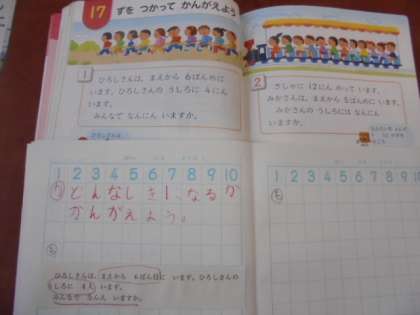 17 ずを つかって かんがえよう
1
ひろしさんは、まえから 6ばんめに
います。ひろしさんの うしろに 4にん
います。
みんなで なんにん いますか。
2
きしゃに 12にん のって います。
みかさんは、まえから 5ばんめに います。
みかさんの うしろには なんにん
いますか。
1 2 3 4 5 6 7 8 9 10
どんなしきに なるか
かんがえよう。
ひろしさんは、まえから 6ばん目に います。ひろしさんの
うしろに 4人 います。
みんなで なん人 いますか。
1 2 3 4 5 6 7 8 9 10